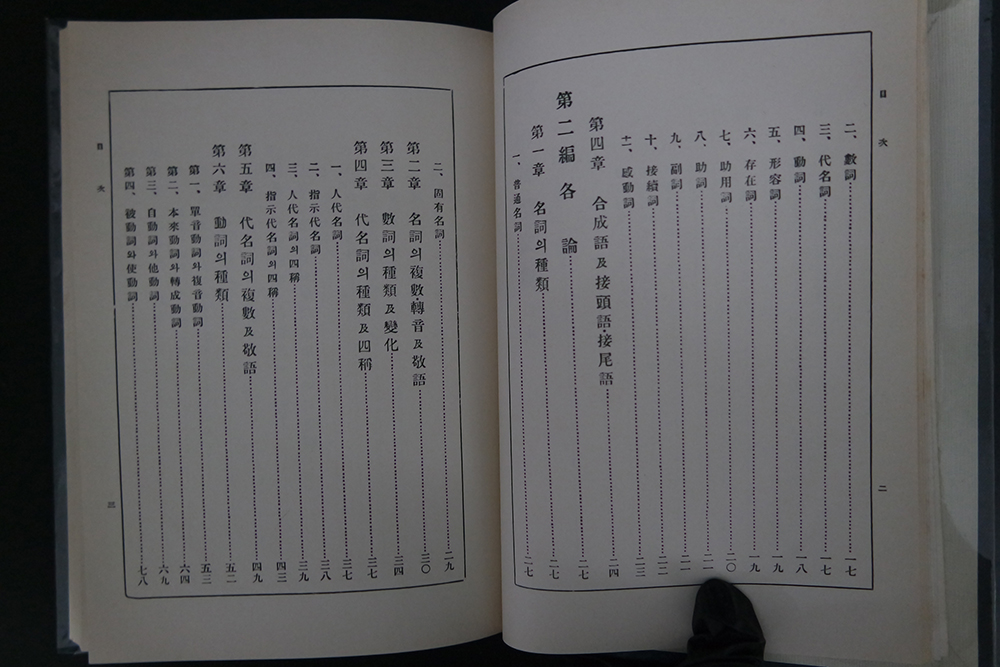 目次
二
二、數詞……一七
三、代名詞……一七
四、動詞……一八
五、形容詞……一九
六、存在詞……一九
七、助用詞……二〇
八、助詞……二一
九、副詞……二一
十、接續詞……二二
十一、感動詞……二三
第四章 合成語及接頭語·接尾語……二四
第二編 各論……二七
第一章 名詞의種類……二七
一、普通名詞……二七
二、固有名詞……二九
第二章 名詞의複數·轉音及敬語……三〇
第三章 數詞의種類及變化……三四
第四章 代名詞의種類及四稱……三七
一、人代名詞……三七
二、指示代名詞……三八
三、人代名詞의四稱……三九
四、指示代名詞의四稱……四三
第五章 代名詞의複數及敬語……四九
第六章 動詞의種類……五二
第一、單音動詞와複音動詞……五三
第二、本來動詞와轉成動詞……六四
第三、自動詞와他動詞……六九
第四、被動詞와使動詞……七八
目次
三